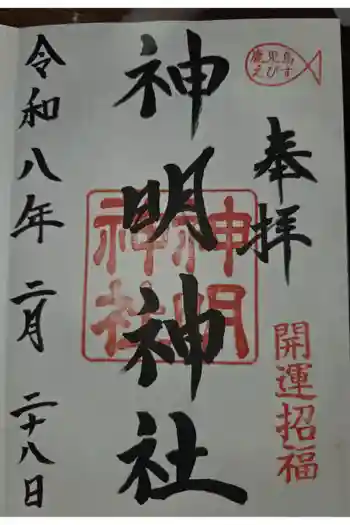 鹿児島
えびす
奉拝
開運招福
神明神社
神明
神社
令和八年 二月 二十八日